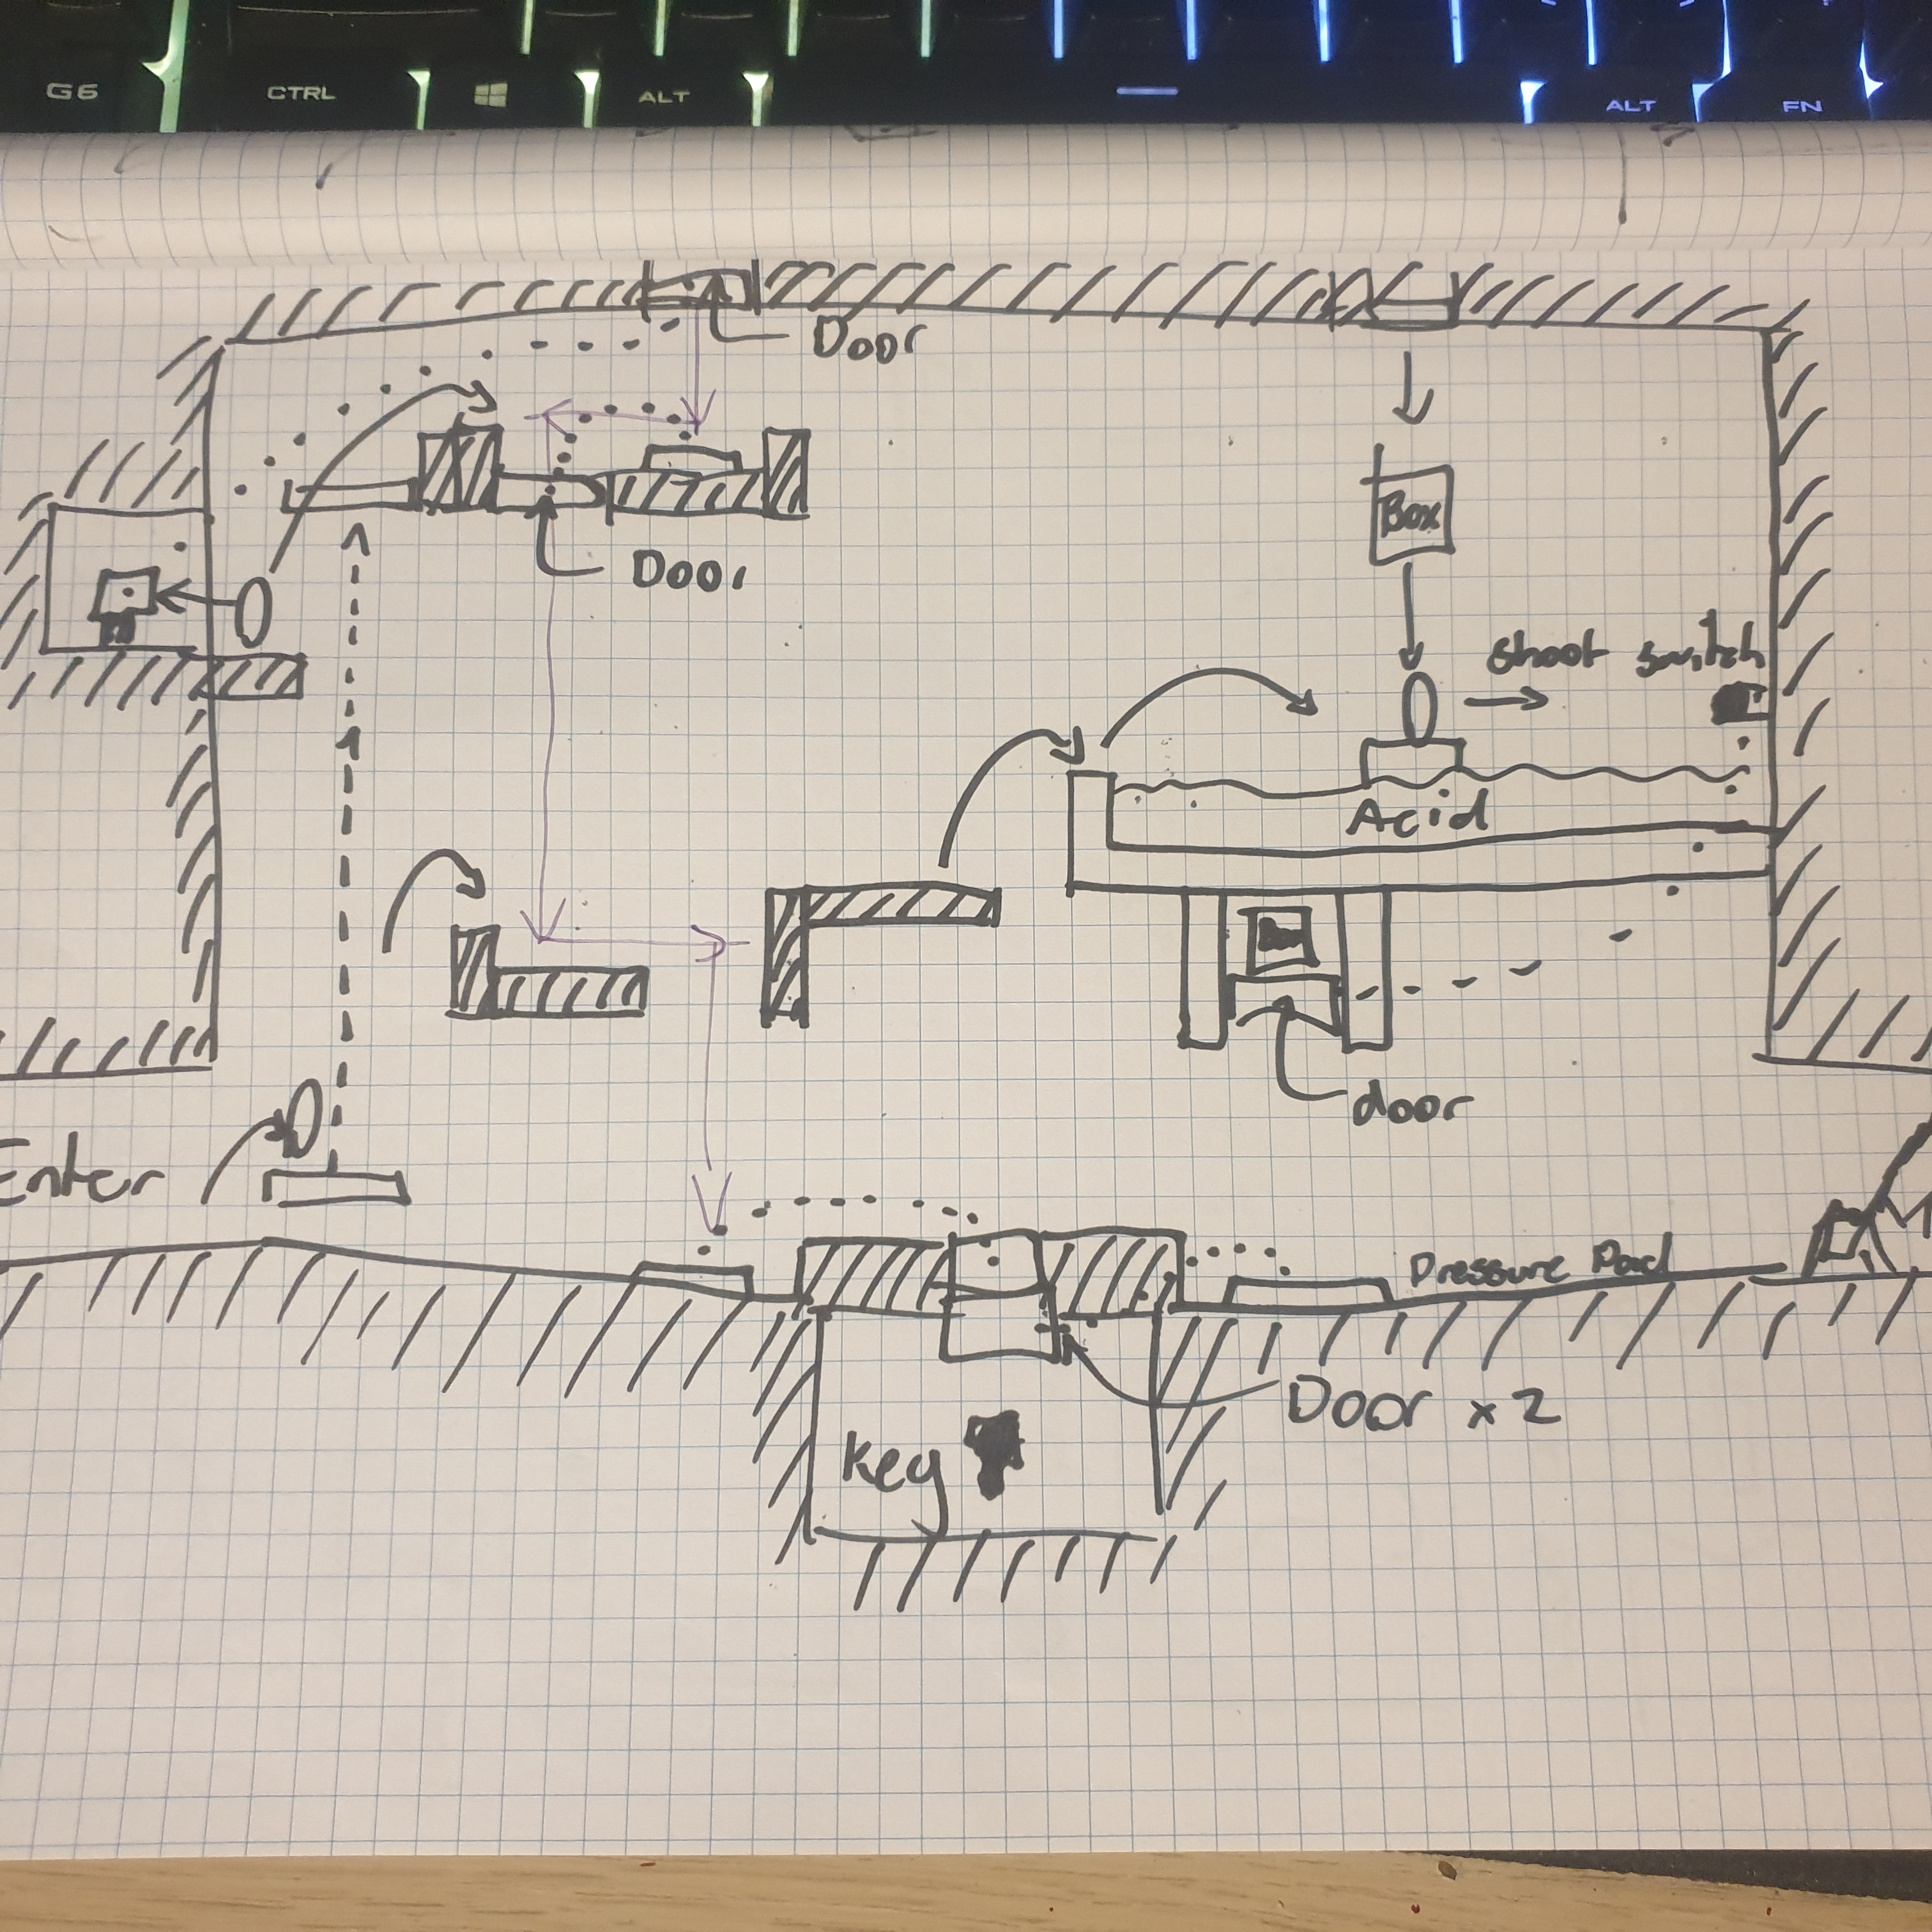 G6 CTRL ALT ALT FN
Door
Box
Door
shoot switch
Acid
door
Enter
Pressure Pad
Door x 2
Key